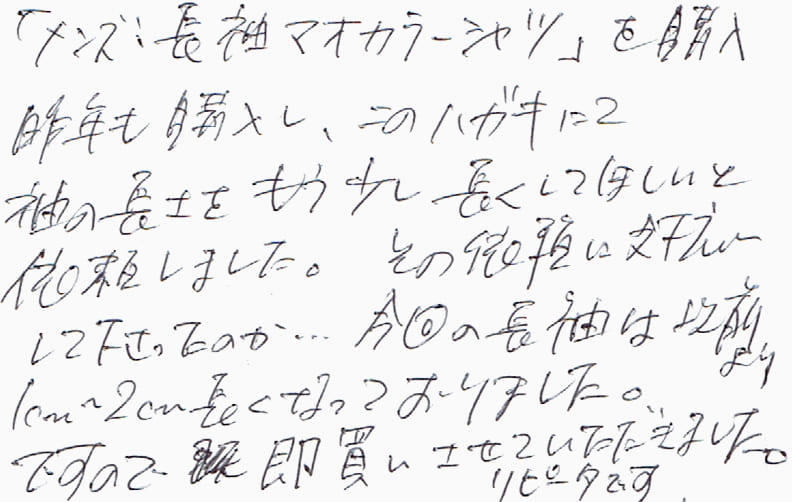 「メンズ:長袖マオカラーシャツ」を購入
昨年も購入し、このハガキにて
袖の長さをもう少し長くしてほしいと
依頼しました。その依頼に対応
して下さったのか…今回の長袖は以前より
1cm~2cm長くなっておりました。
ですので 即買いさせていただきました。
リピータです